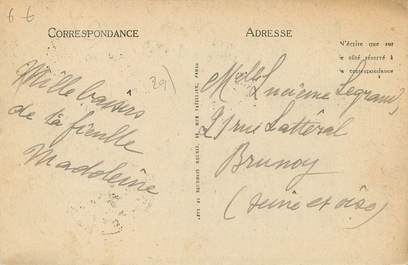 6 6
CORRESPONDANCE
29)
Mille baisers
de ta fieulle
Madeleine
ADRESSE
N'écrire que sur
le côté réservé à
la correspondance
Melle Lucienne Legrand
21 rue Lattéral
Brunoy
(Seine et oise)